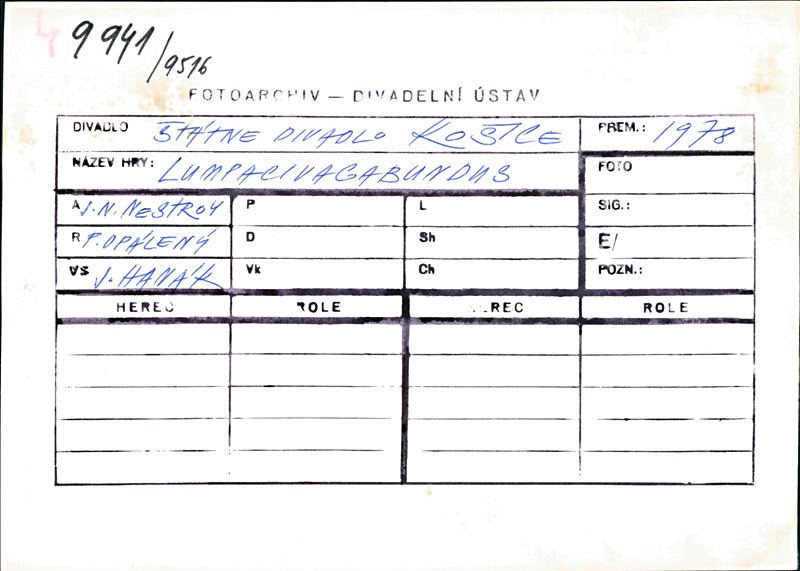 9941/9516
FOTOARCHIV — DIVADELNÍ ÚSTAV
DIVADLO ŠTÁTNE DIVADLO KOŠICE PREM.: 1978
NÁZEV HRY: LUMPACIVAGABUNDUS FOTO
A J.N. NESTROY P L SIG.:
R P. OPÁLENÝ D Sh E/
VS J. HANÁK Vk Ch POZN.:
HEREC ROLE HEREC ROLE